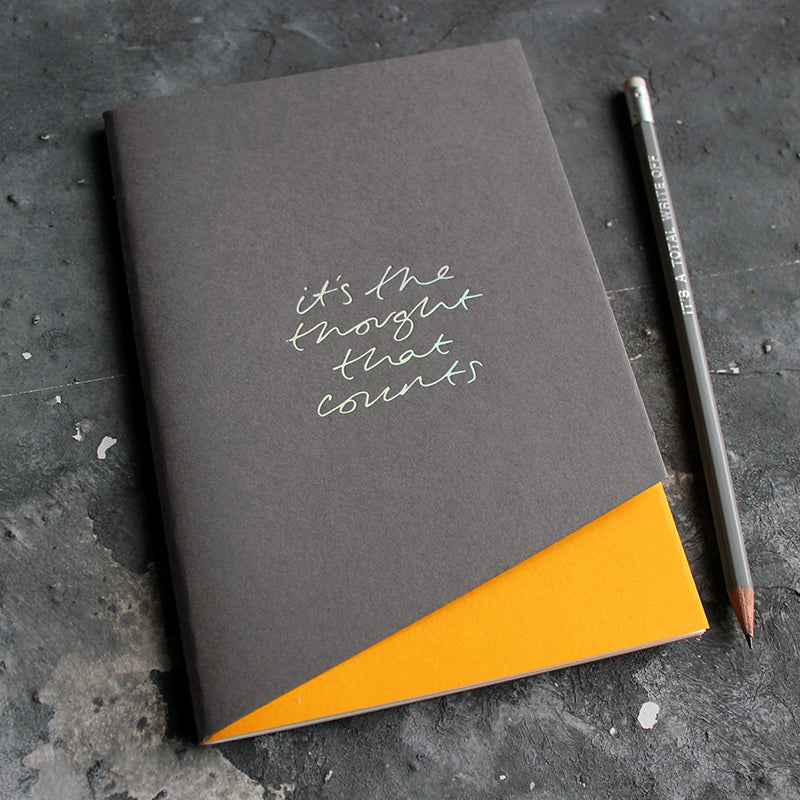 it's the
thought
that
counts
IT'S A TOTAL WRITE OFF